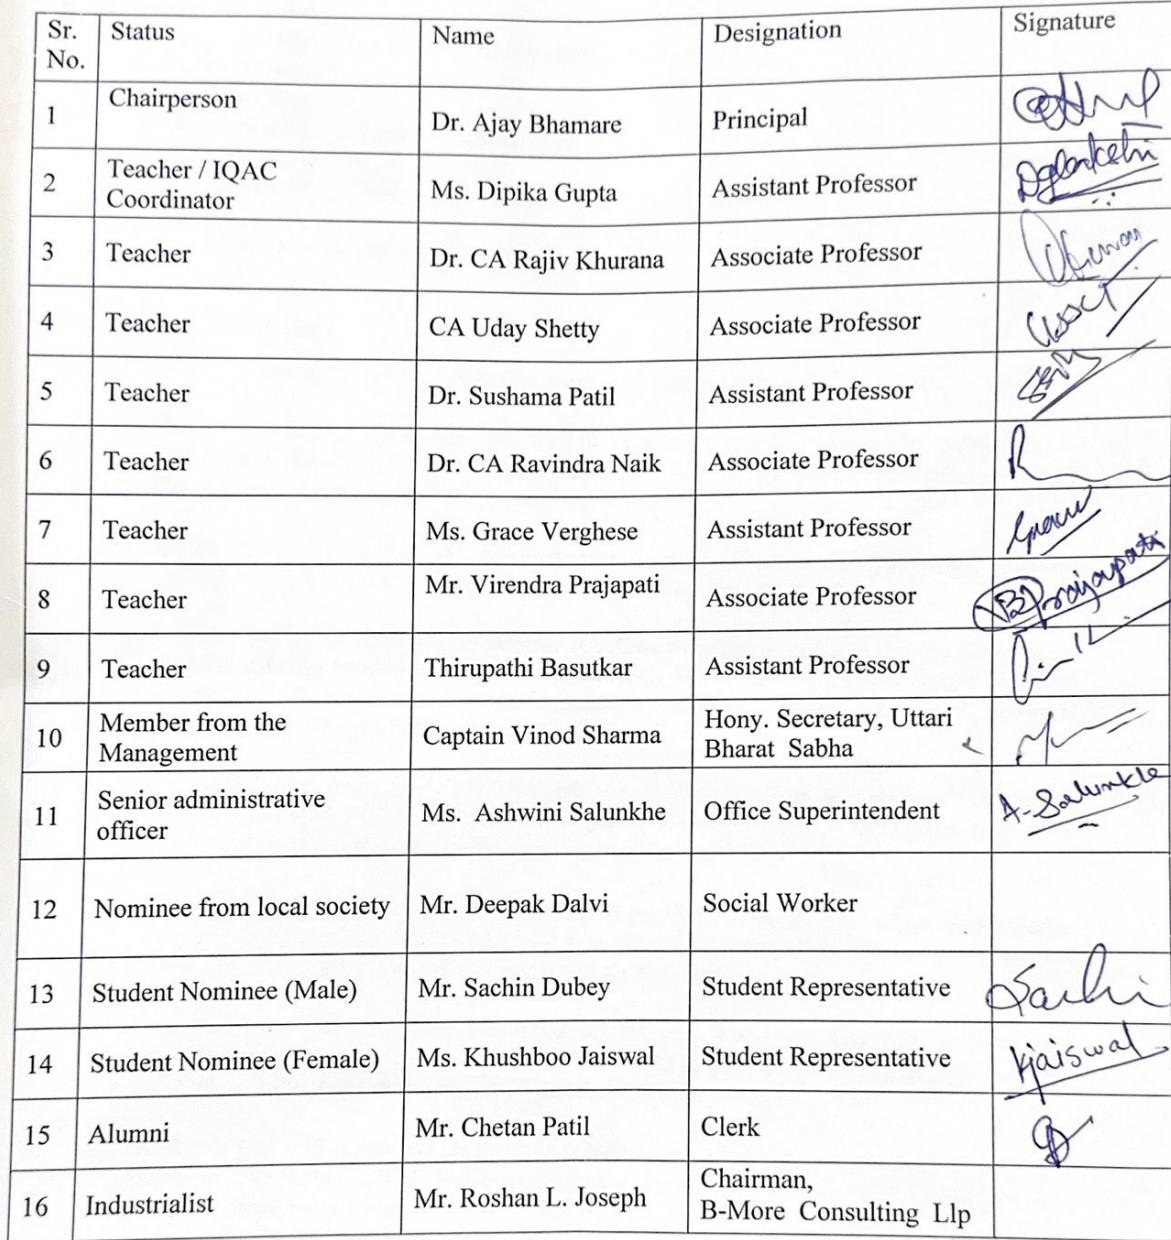 Sr. No. Status Name Designation Signature
1 Chairperson Dr. Ajay Bhamare Principal
2 Teacher / IQAC Coordinator Ms. Dipika Gupta Assistant Professor
3 Teacher Dr. CA Rajiv Khurana Associate Professor
4 Teacher CA Uday Shetty Associate Professor
5 Teacher Dr. Sushama Patil Assistant Professor
6 Teacher Dr. CA Ravindra Naik Associate Professor
7 Teacher Ms. Grace Verghese Assistant Professor
8 Teacher Mr. Virendra Prajapati Associate Professor Prajapati
9 Teacher Thirupathi Basutkar Assistant Professor
10 Member from the Management Captain Vinod Sharma Hony. Secretary, Uttari Bharat Sabha
11 Senior administrative officer Ms. Ashwini Salunkhe Office Superintendent A-Salunkhe
12 Nominee from local society Mr. Deepak Dalvi Social Worker
13 Student Nominee (Male) Mr. Sachin Dubey Student Representative
14 Student Nominee (Female) Ms. Khushboo Jaiswal Student Representative Kjaiswal
15 Alumni Mr. Chetan Patil Clerk
16 Industrialist Mr. Roshan L. Joseph Chairman, B-More Consulting Llp